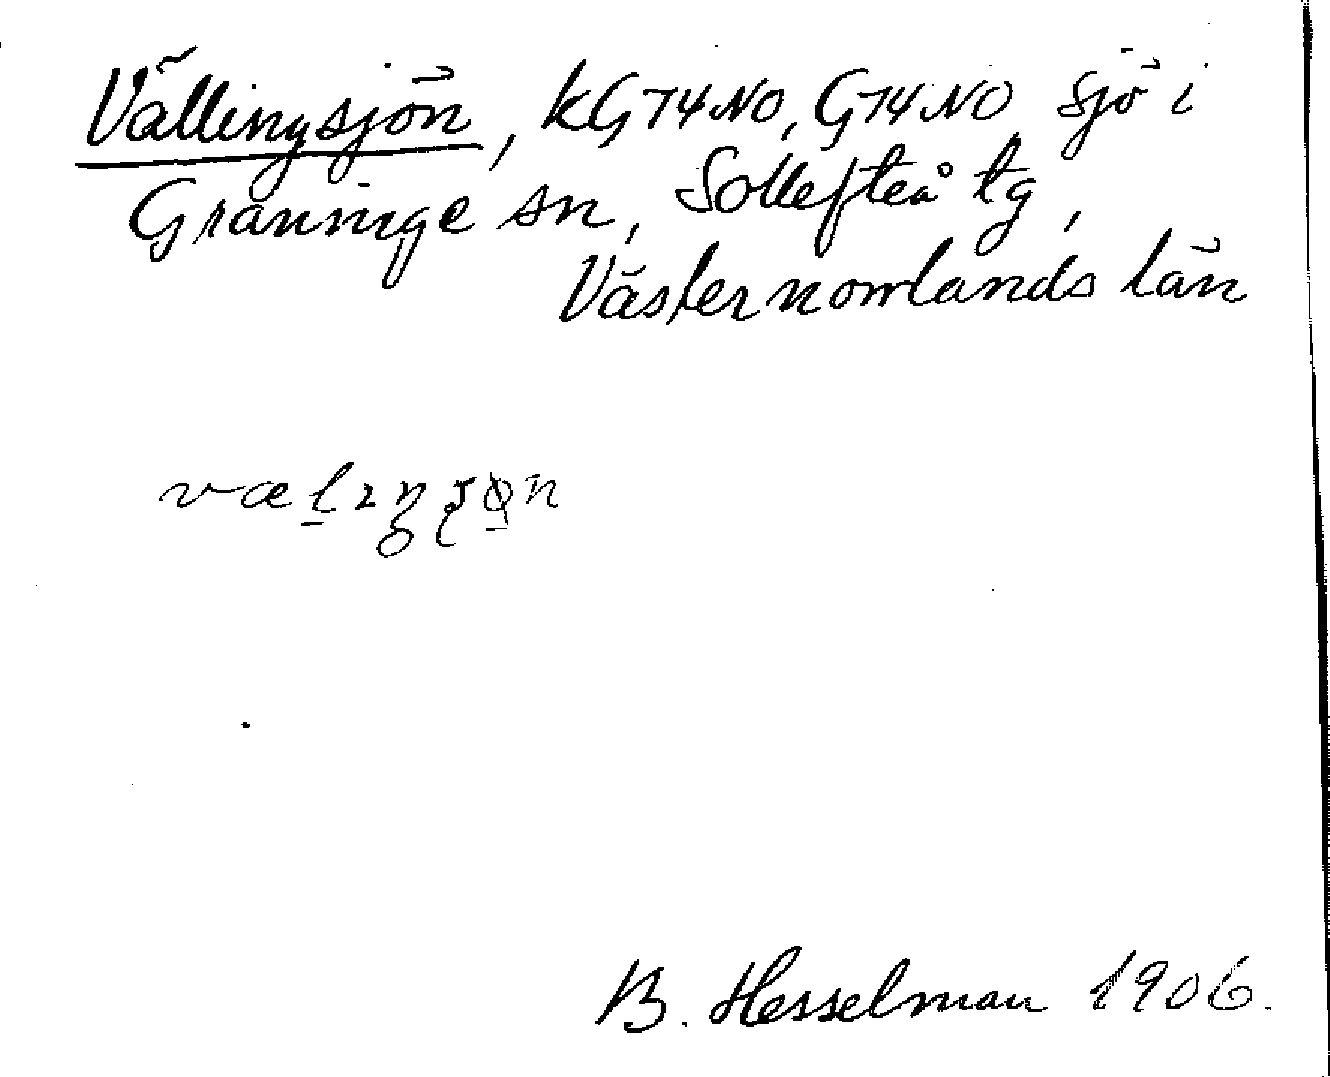 Vällingsjön, kG74NO, G74NO Sjö i
Graninge sn, Sollefteå tg,
Västernorrlands län
B. Hesselman 1906.